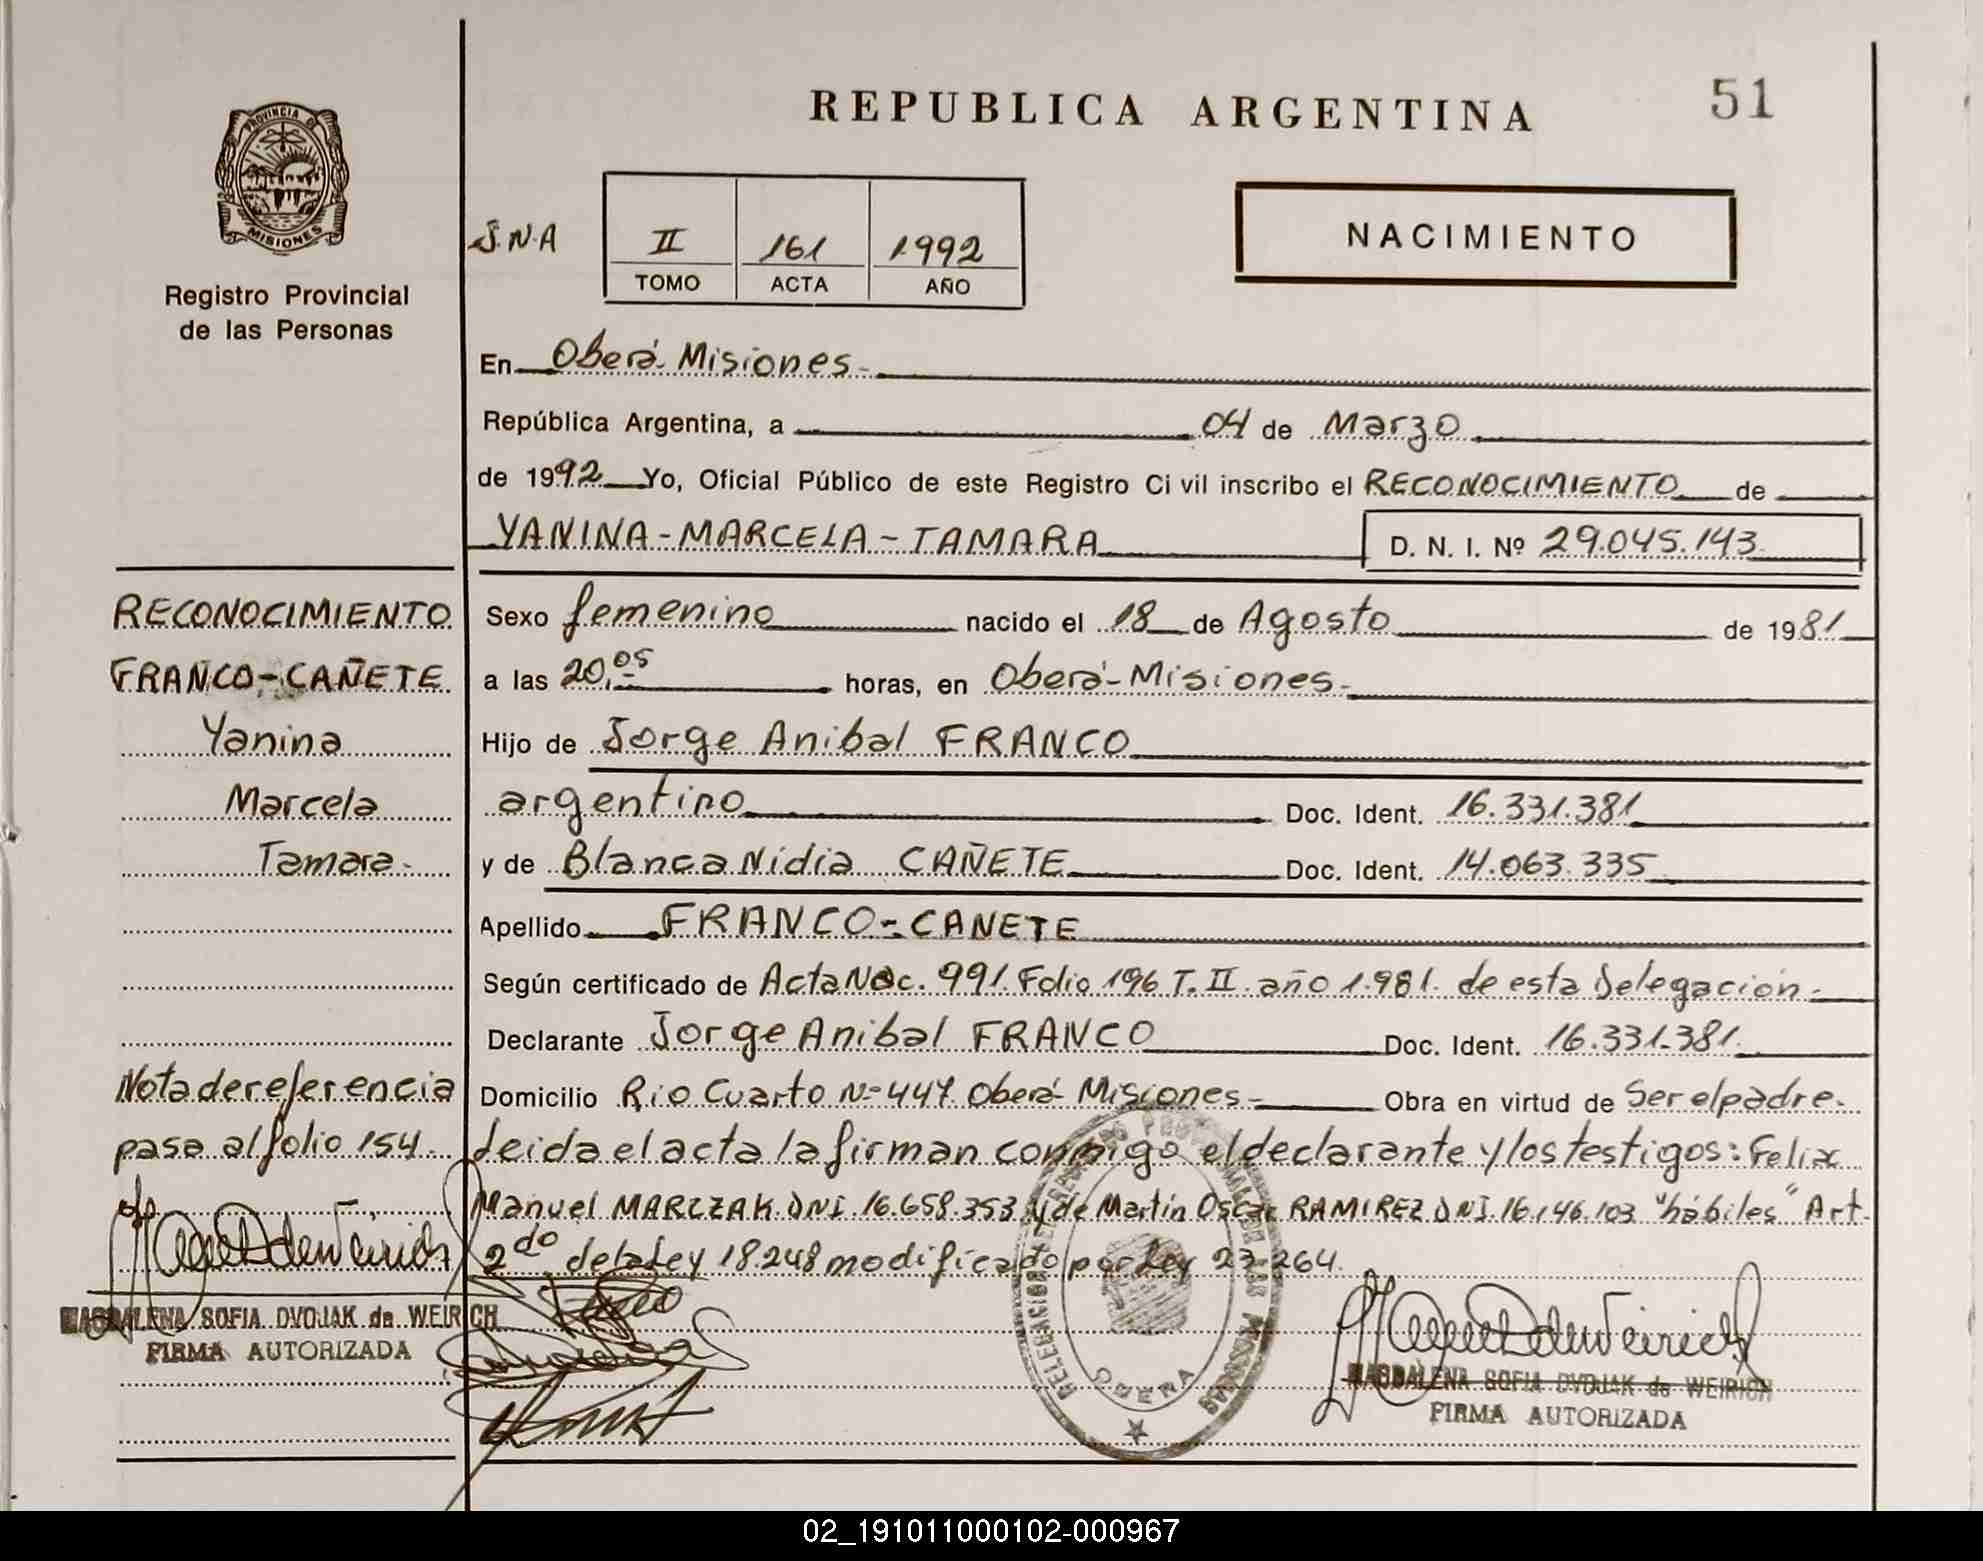 REPUBLICA ARGENTINA
51
PROVINCIA D
MISIONES
Registro Provincial
de las Personas
J.N.A
II 161 1992
TOMO ACTA AÑO
NACIMIENTO
En Oberá Misiones
República Argentina, a 04 de Marzo
de 1992 Yo, Oficial Público de este Registro Civil inscribo el RECONOCIMIENTO de
YANINA-MARCELA-TAMARA
D. N. I. Nº 29.045.143
RECONOCIMIENTO
FRANCO-CAÑETE
Yanina
Marcela
Tamara.
Sexo femenino nacido el 18 de Agosto de 1981
a las 20,05 horas, en Oberá-Misiones-
Hijo de Jorge Anibal FRANCO
argentino Doc. Ident. 16.331.381
y de Blanca Nidia CAÑETE Doc. Ident. 14.063.335
Apellido FRANCO-CANETE
Según certificado de Acta Nac. 991 Folio 196 T. II año 1.981. de esta Delegación.-
Declarante Jorge Anibal FRANCO Doc. Ident. 16.331.381.
Domicilio Rio Cuarto Nº 447 Oberá Misiones- Obra en virtud de Ser el padre.
Leida el acta la firman conmigo el declarante y los testigos: Felix
Manuel MARCZAK DNI. 16.658.353 y de Martín Oscar RAMIREZ DNI. 16.146.103 "hábiles" Art.
2do de la Ley 18.248 modificado por Ley 23.264.
Nota de referencia
pasa al folio 154.
MAGDALENA SOFIA DVOJAK de WEIRICH
FIRMA AUTORIZADA
OBERA
MAGDALENA SOFIA DVOJAK de WEIRICH
FIRMA AUTORIZADA
02_191011000102-000967